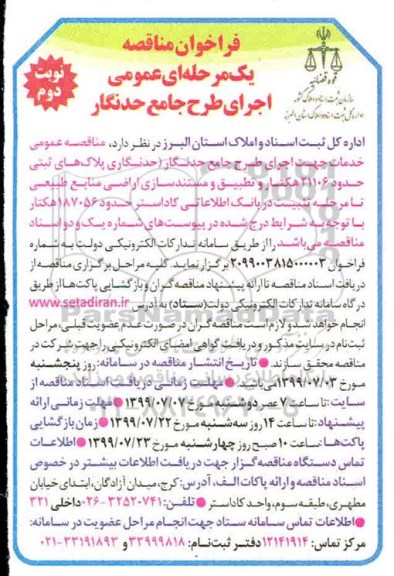 فراخوان مناقصه
یک مرحله‌ای عمومی
اجرای طرح جامع حدنگار
نوبت دوم
قوه قضائیه
سازمان ثبت اسناد و املاک کشور
اداره کل ثبت اسناد و املاک استان البرز
اداره کل ثبت اسناد و املاک استان البرز در نظر دارد، مناقصه عمومی
خدمات جهت اجرای طرح جامع حدنگار (حدنگاری پلاک‌های ثبتی
حدود ۲۱۱۰۶ هکتار و تطبیق و مستندسازی اراضی منابع طبیعی
تا مرحله تثبیت در بانک اطلاعاتی کاداستر حدود ۱۸۷۰۵۶ هکتار
با توجه به شرایط درج شده در پیوست‌های شماره یک و دو اسناد
مناقصه می‌باشد) را از طریق سامانه تدارکات الکترونیکی دولت به شماره
فراخوان ۲۰۹۹۰۰۳۸۱۵۰۰۰۰۰۳ برگزار نماید. کلیه مراحل برگزاری مناقصه از
دریافت اسناد مناقصه تا ارائه پیشنهاد مناقصه گران و بازگشایی پاکت‌ها از طریق
درگاه سامانه تدارکات الکترونیکی دولت (ستاد) به آدرس www.setadiran.ir
انجام خواهد شد و لازم است مناقصه گران در صورت عدم عضویت قبلی، مراحل
ثبت‌نام در سایت مذکور و دریافت گواهی امضای الکترونیکی را جهت شرکت در
مناقصه محقق سازند. ● تاریخ انتشار مناقصه در سامانه: روز پنجشنبه
مورخ ۱۳۹۹/۰۷/۰۳ می‌باشد. ● مهلت زمانی دریافت اسناد مناقصه از
سایت: تا ساعت ۷ عصر دوشنبه مورخ ۱۳۹۹/۰۷/۰۷ ● مهلت زمانی ارائه
پیشنهاد: تا ساعت ۱۴ روز سه‌شنبه مورخ ۱۳۹۹/۰۷/۲۲ ● زمان بازگشایی
پاکت‌ها: ساعت ۱۰ صبح روز چهارشنبه مورخ ۱۳۹۹/۰۷/۲۳ ● اطلاعات
تماس دستگاه مناقصه گزار جهت دریافت اطلاعات بیشتر در خصوص
اسناد مناقصه و ارائه پاکات الف، آدرس: کرج، میدان آزادگان، ابتدای خیابان
مطهری، طبقه سوم، واحد کاداستر ● تلفن: ۳۲۵۲۰۷۴۱-۰۲۶ داخلی ۳۲۱
● اطلاعات تماس سامانه ستاد جهت انجام مراحل عضویت در سامانه:
مرکز تماس: ۱۲۱۴۱۹۱۴ دفتر ثبت‌نام: ۳۳۹۹۹۸۱۸ و ۳۳۱۹۱۸۹۳-۰۲۱
ParsNamadData